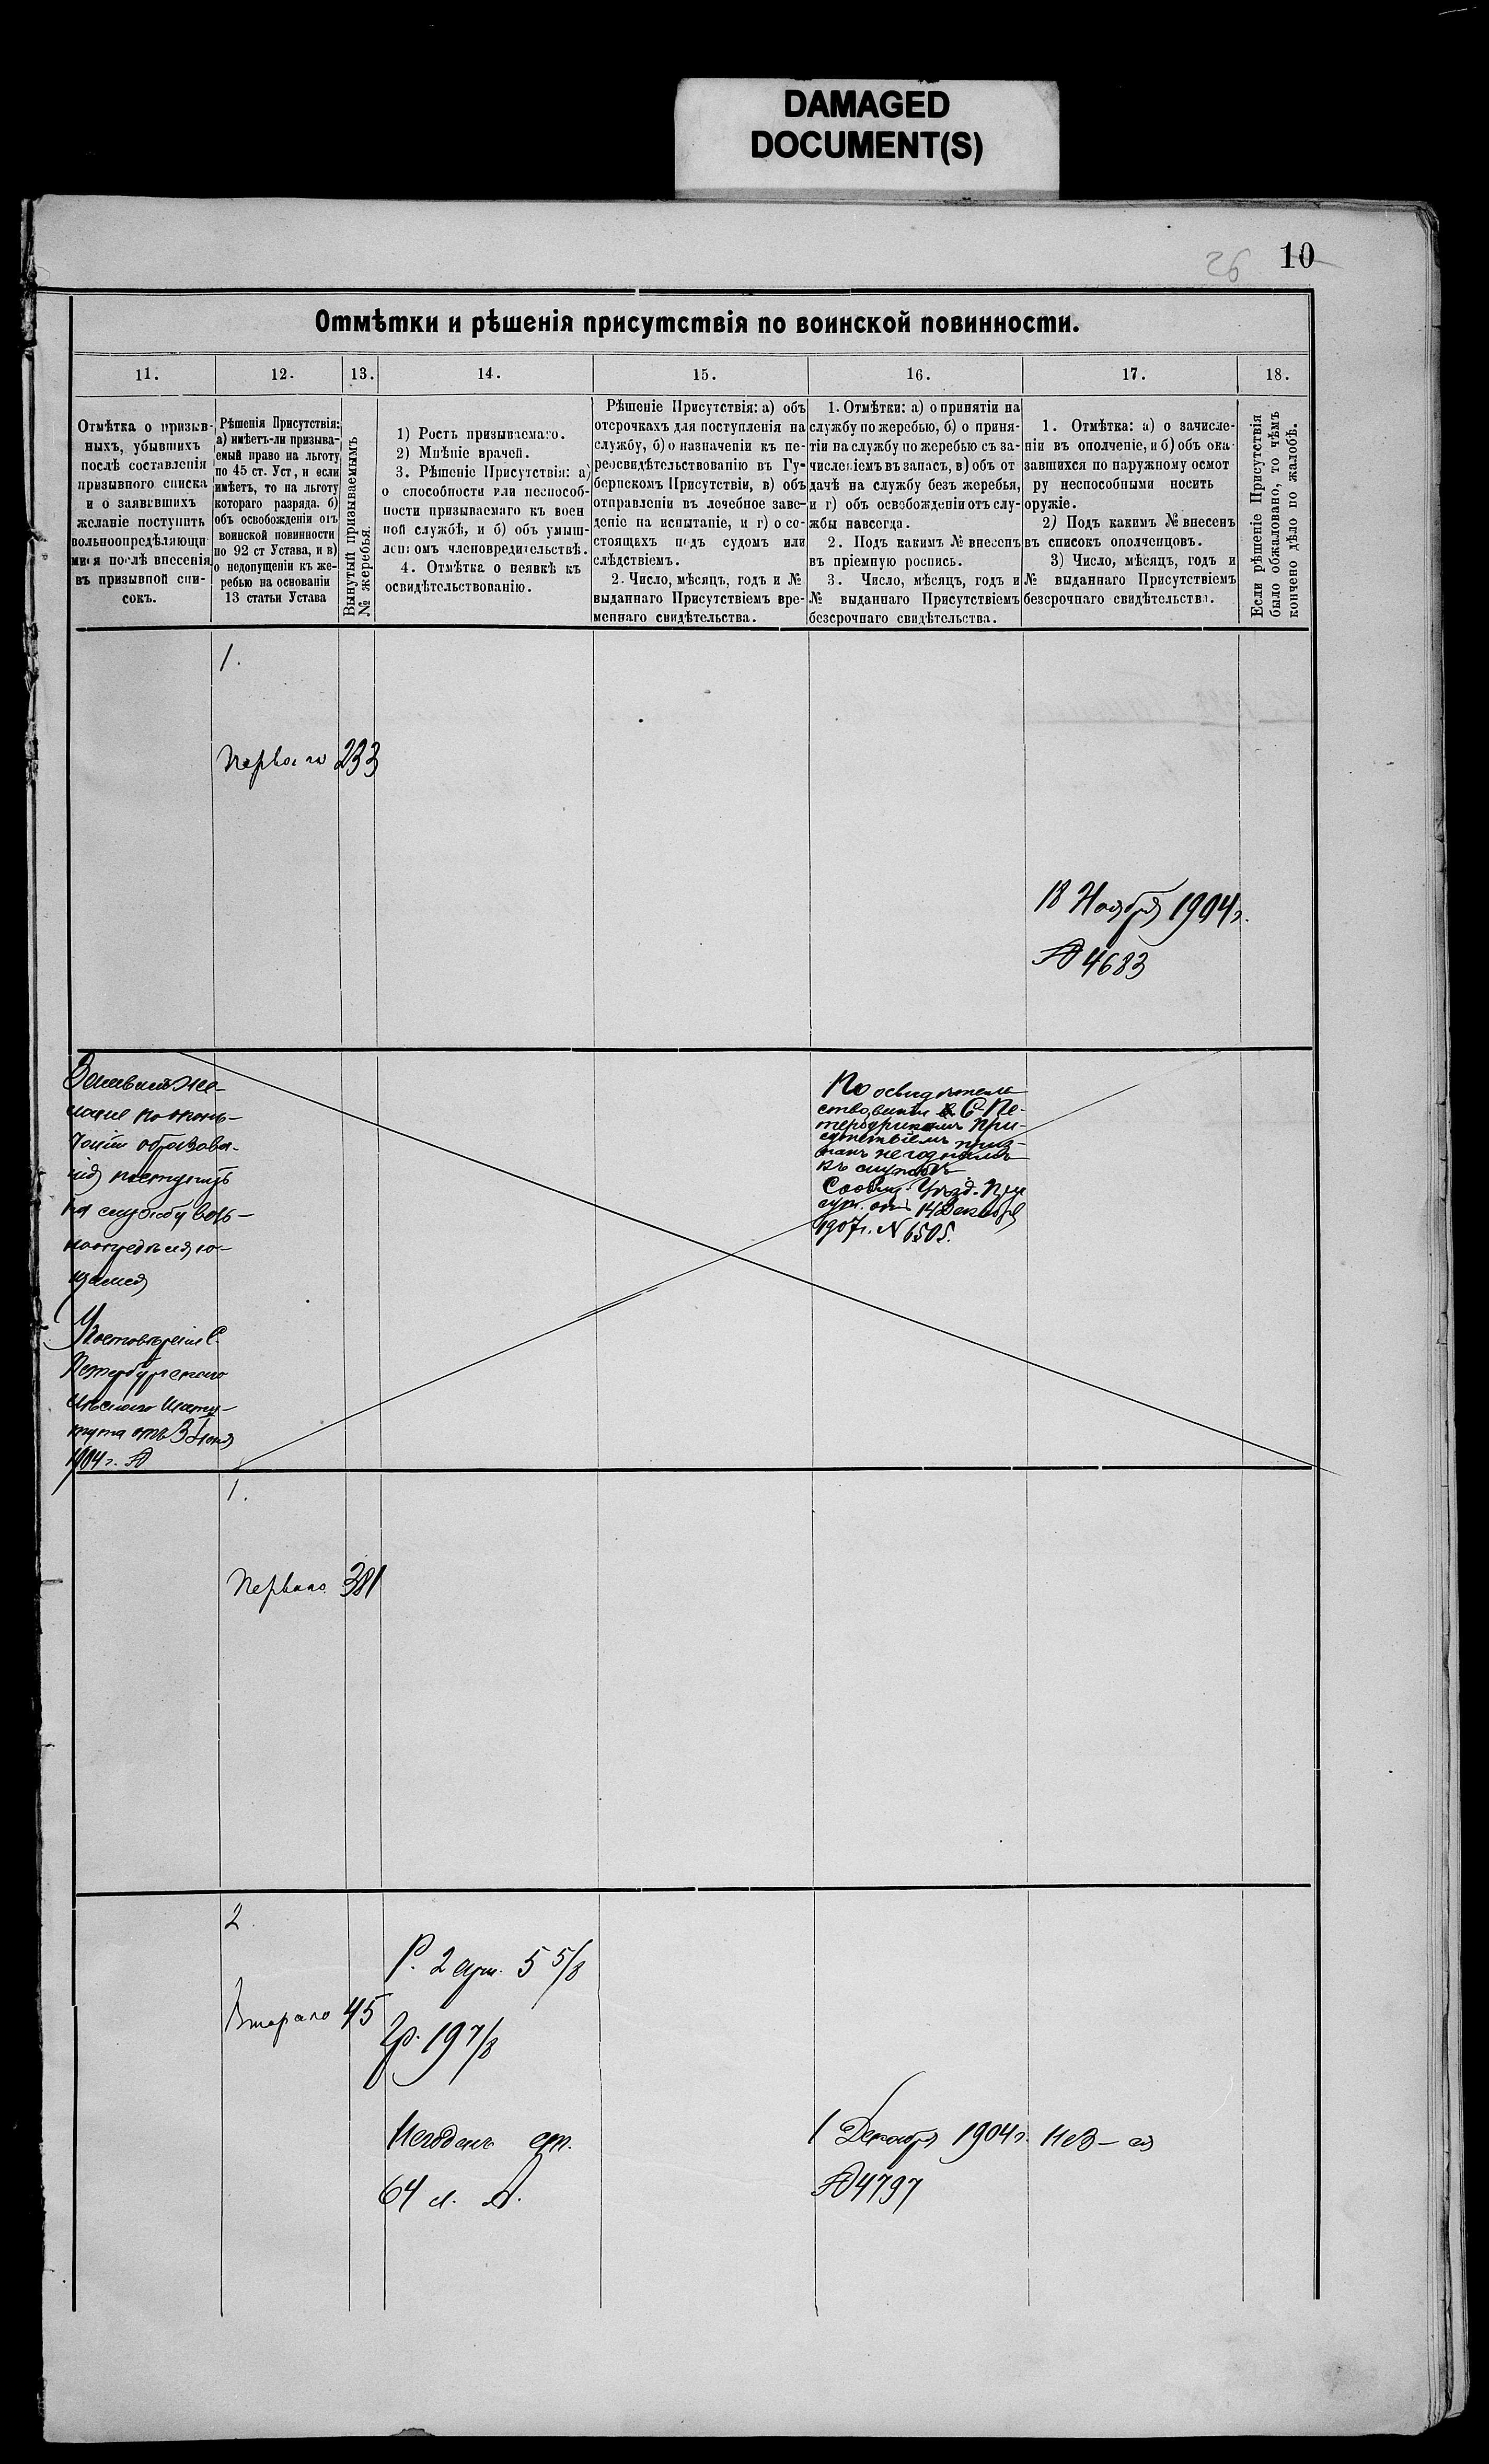 DAMAGED
DOCUMENT(S)
26 10
Отмѣтки и рѣшенія присутствія по воинской повинности.
11. 12. 13. 14. 15. 16. 17. 18.
Отмѣтка о призыв-
ныхъ, убывшихъ
послѣ составленія
призывного списка
и о заявившихъ
желаніе поступить
вольноопредѣляющи
мися послѣ внесенія
въ призывной спи-
сокъ.
Рѣшенія Присутствія:
а) имѣетъ-ли призыва-
емый право на льготу
по 45 ст. Уст, и если
имѣетъ, то на льготу
котораго разряда. б)
объ освобожденіи отъ
воинской повинности
по 92 ст Устава, и в)
о недопущеніи къ же-
ребью на основаніи
13 статьи Устава
Вынутый призываемымъ
№ жеребья.
1) Ростъ призываемаго.
2) Мнѣніе врачей.
3. Рѣшеніе Присутствія: а)
о способности или неспособ-
ности призываемаго къ воен
ной службѣ, и б) объ умыш-
ленномъ членовредительствѣ.
4. Отмѣтка о неявкѣ къ
освидѣтельствованію.
Рѣшеніе Присутствія: а) объ
отсрочкахъ для поступленія на
службу, б) о назначеніи къ пе-
реосвидѣтельствованію въ Гу-
бернскомъ Присутствіи, в) объ
отправленіи въ лечебное заве-
деніе на испытаніе, и г) о со-
стоящахъ подъ судомъ или
слѣдствіемъ.
2. Число, мѣсяцъ, годъ и №
выданнаго Присутствіемъ вре-
меннаго свидѣтельства.
1. Отмѣтки: а) о принятіи на
службу по жеребью, б) о приня-
тіи на службу по жеребью съ за-
численіемъ въ запасъ, в) объ от
дачѣ на службу безъ жеребья,
и г) объ освобожденіи отъ слу-
жбы навсегда.
2. Подъ какимъ № внесенъ
въ пріемную роспись.
3. Число, мѣсяцъ, годъ и
№ выданнаго Присутствіемъ
безсрочнаго свидѣтельства.
1. Отмѣтка: а) о зачисле-
ніи въ ополченіе, и б) объ ока
завшихся по наружному осмот
ру неспособными носить
оружіе.
2) Подъ какимъ № внесенъ
въ списокъ ополченцовъ.
3) Число, мѣсяцъ, годъ и
№ выданнаго Присутствіемъ
безсрочнаго свидѣтельства.
Если рѣшеніе Присутствія
было обжаловано, то чѣмъ
кончено дѣло по жалобѣ.
1.
Перваго 233
18 Ноября 1904 г.
№ 4683
Заявилъ же-
ланіе по окон-
чаніи образова-
нія поступить
на службу воль-
ноопредѣляю-
щимся
Удостовѣреніе С.
Петербургскаго
Лѣсного Инсти-
тута отъ 3 Іюня
1904 г. №
По освидѣтель
ствованіи в С-Пе-
тербургскомъ При-
сутствіемъ приз-
нанъ негоднымъ
къ службѣ
Сообщ. Уѣзд. При
сут. отъ 14 Декабря
1907 г. № 6505.
1.
Перваго 381
2.
Втораго 45
Р. 2 арш. 5 5/8
Гр. 19 7/8
Негоденъ ст.
64 л. А.
1 Декабря 1904 г.
№ 4797